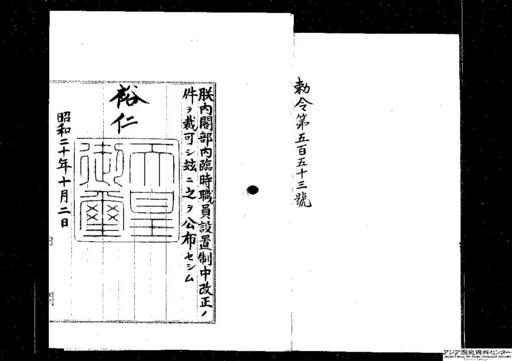 勅令第五百五十三號
朕內閣部內臨時職員設置制中改正ノ
件ヲ裁可シ玆ニ之ヲ公布セシム
裕仁
天皇
御璽
昭和二十年十月二日
アジア歴史資料センター